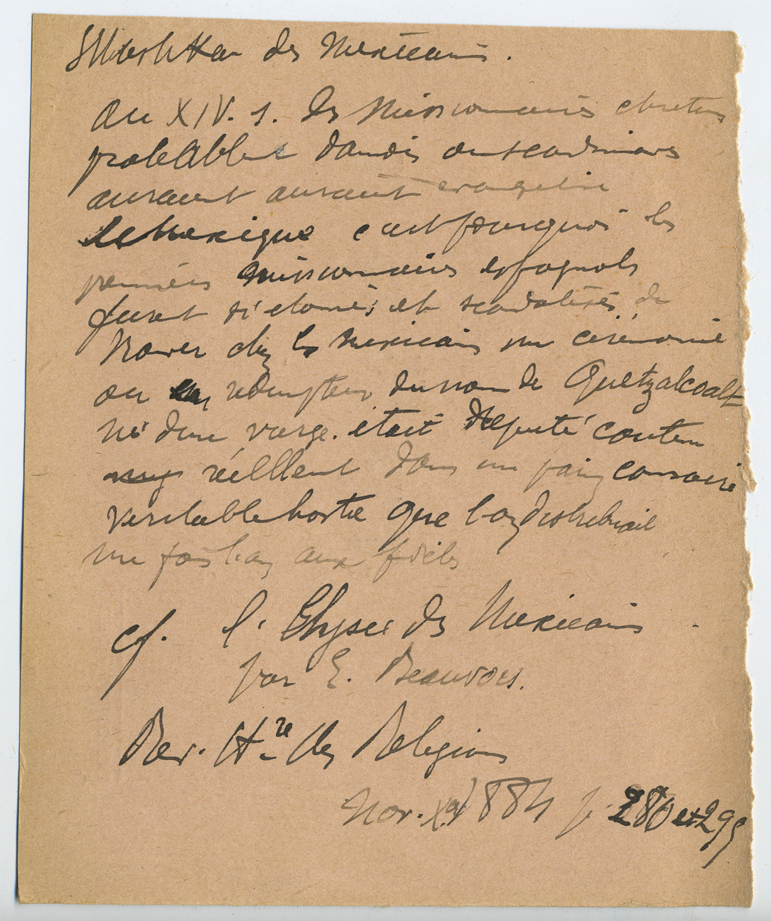 des Mexicains.
au XIV. s. des missionnaires chretiens
probablem irlandais ou scandinaves
auraient auraient évangélisé
le Mexique c'est pourquoi les
premiers missionnaires espagnols
furent si étonnés et scandalisés de
trouver chez les Mexicains une cérémonie
ou un rédempteur du nom de Quetzalcoalt
né d'une vierge. était réputé contenu
réellement dans un pain consacré
veritable hostie que l'on distribuait
une fois l'an aux fidèles
cf. l'Elysée des Mexicains
par E. Beauvois.
Rev. Hre des Religions
Nov. Xbre 1884 p. 286 et 299